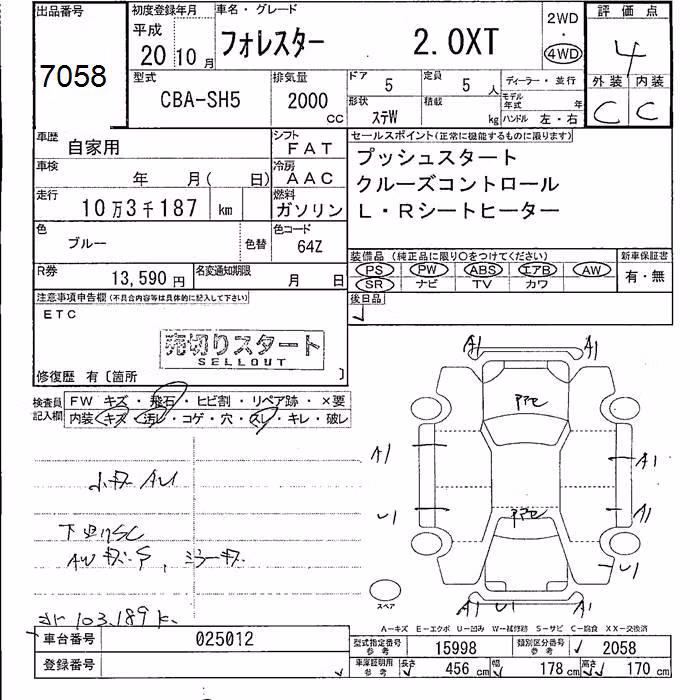 出品番号
7058
初度登録年月
平成
20 10月
車名・グレード
フォレスター 2.0XT
2WD
4WD
評価点
4
外装 内装
C C
型式
CBA-SH5
排気量
2000 CC
ドア
5
定員
5人
形状
ステW
積載
kg
ディーラー・並行
モデル年式 年
ハンドル 左・右
車歴
自家用
シフト
FAT
車検
年 月( 日)
冷房
AAC
走行
10万3千187 km
燃料
ガソリン
色
ブルー
色替
色コード
64Z
R券
13,590円
名変通知期限
月 日
セールスポイント(正常に機能するものに限ります)
プッシュスタート
クルーズコントロール
L・Rシートヒーター
装備品(純正品に限り○をつけてください)
PS PW ABS エアB AW
SR ナビ TV カワ
新車保証書
有・無
後日品
注意事項申告欄(不具合内容等は具体的に記入して下さい)
ETC
売切りスタート
SELLOUT
修復歴 有〔箇所 〕
検査員記入欄
FW キズ・飛石・ヒビ割・リペア跡・×要
内装・キズ・汚レ・コゲ・穴・スレ・キレ・破レ
小キズ AU
下廻りSC
AWキズ
ミラーキズ
103,189k
A1 A1
A1 A1
U1 A1
U1
A1 U1 A1
スペア
A-キズ E-エクボ U-凹み W-補修跡 S-サビ C-腐食 XX-交換済
車台番号
025012
登録番号
型式指定番号 参考
15998
類別区分番号 参考
2058
車庫証明用 参考
長さ 456 cm
幅 178 cm
高さ 170 cm